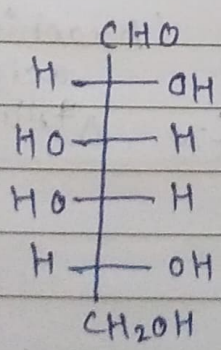 CHO
H OH
HO H
HO H
H OH
CH2OH